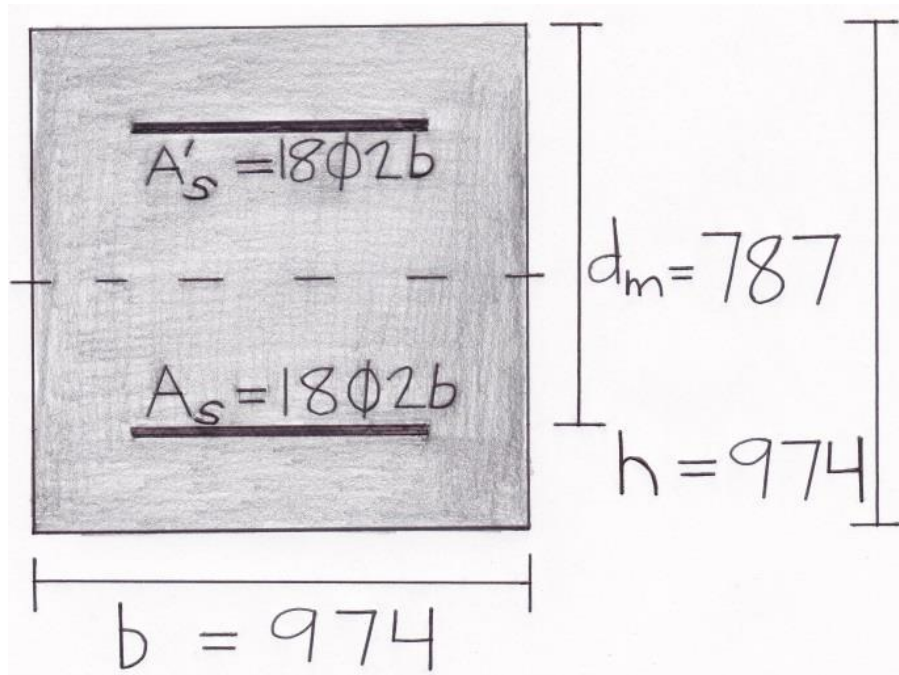 A's = 18Φ2b
dm = 787
As = 18Φ2b
h = 974
b = 974